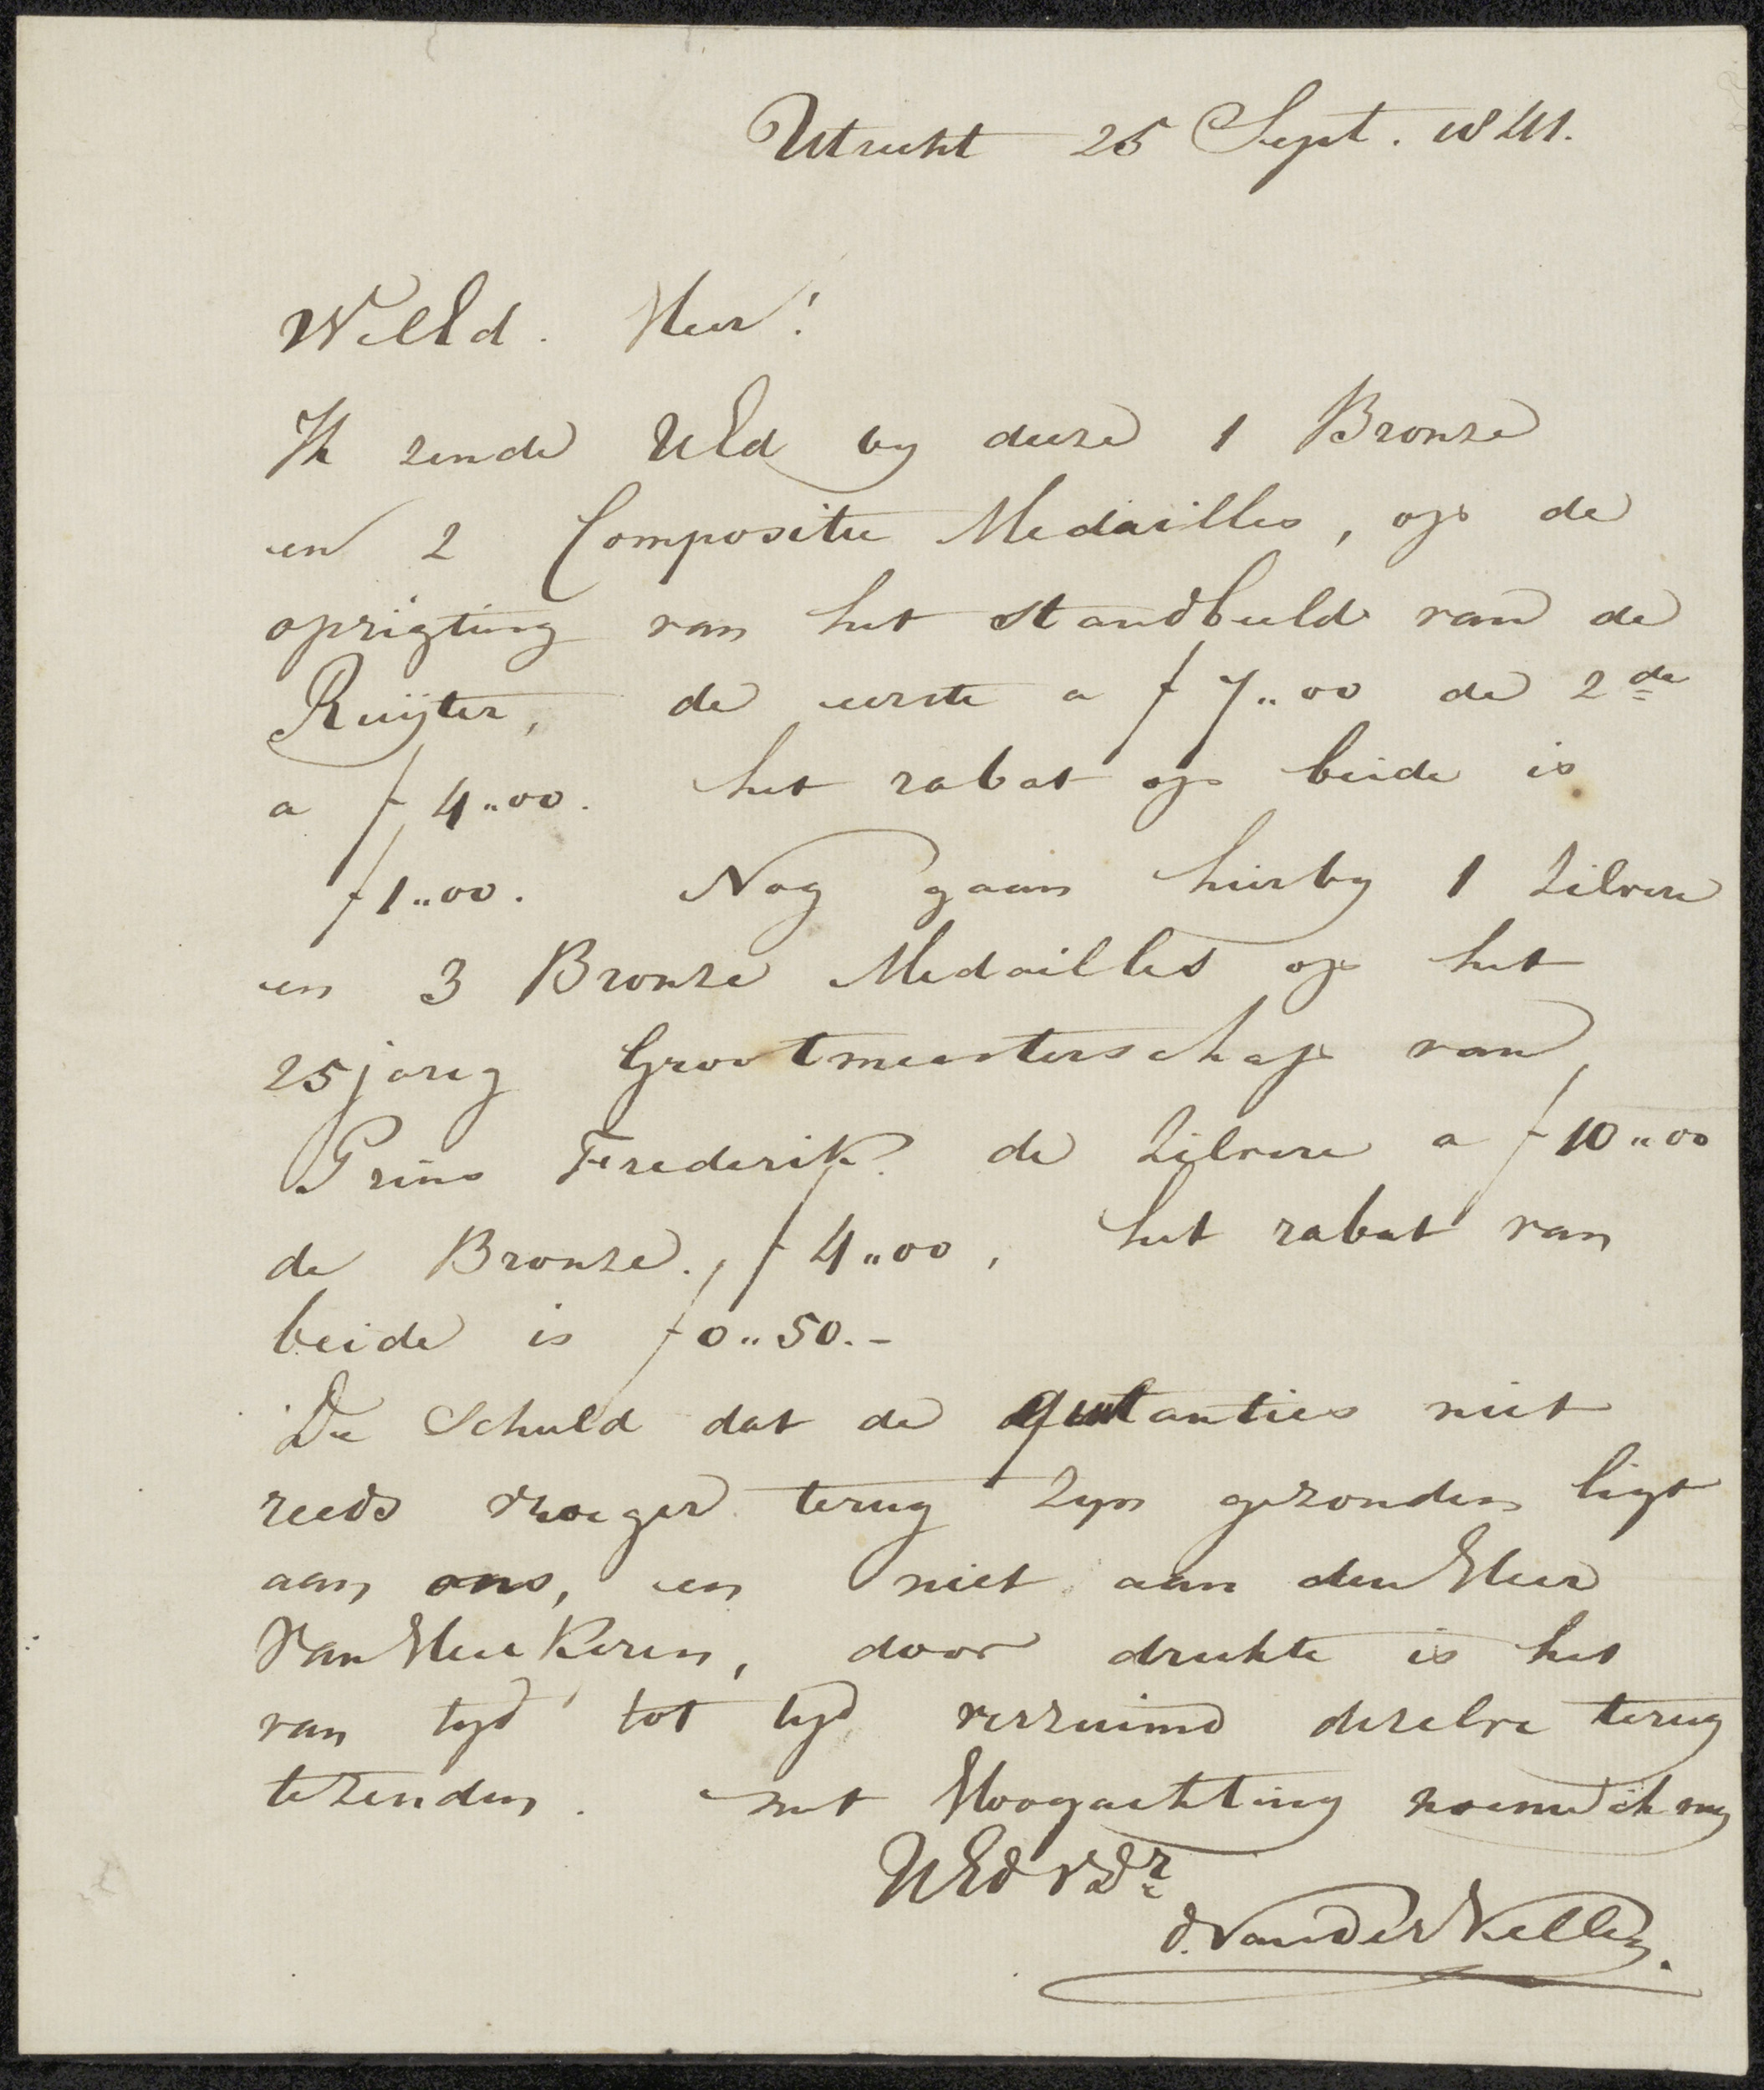 Utrecht 25 Sept. 1841.
WelEd. Heer!
Ik zende UEd by deeze 1 Bronze
en 2 Compositie Medailles, op de
oprigting van het standbeeld van de
Ruijter, de eerste a f 7„00 de 2de
a f 4„00. het rabat op beide is
f 1„00. Nog gaan hierby 1 Zilvere
en 3 Bronze Medailles op het
25 jarig Grootmeesterschap van
Prins Frederik. de Zilvere a f 10„00
de Bronze. f 4„00, het rabat van
beide is f 0„50.-
De Schuld dat de quitanties niet
reeds vroeger terug zyn gezonden ligt
aan ons, en niet aan den Heer
Van Heekeren, door drukte is het
van tyd tot tyd verzuimd dezelve terug
te zenden. met Hoogachting noeme ik my
UEd VDr
D. Van der Kellen.